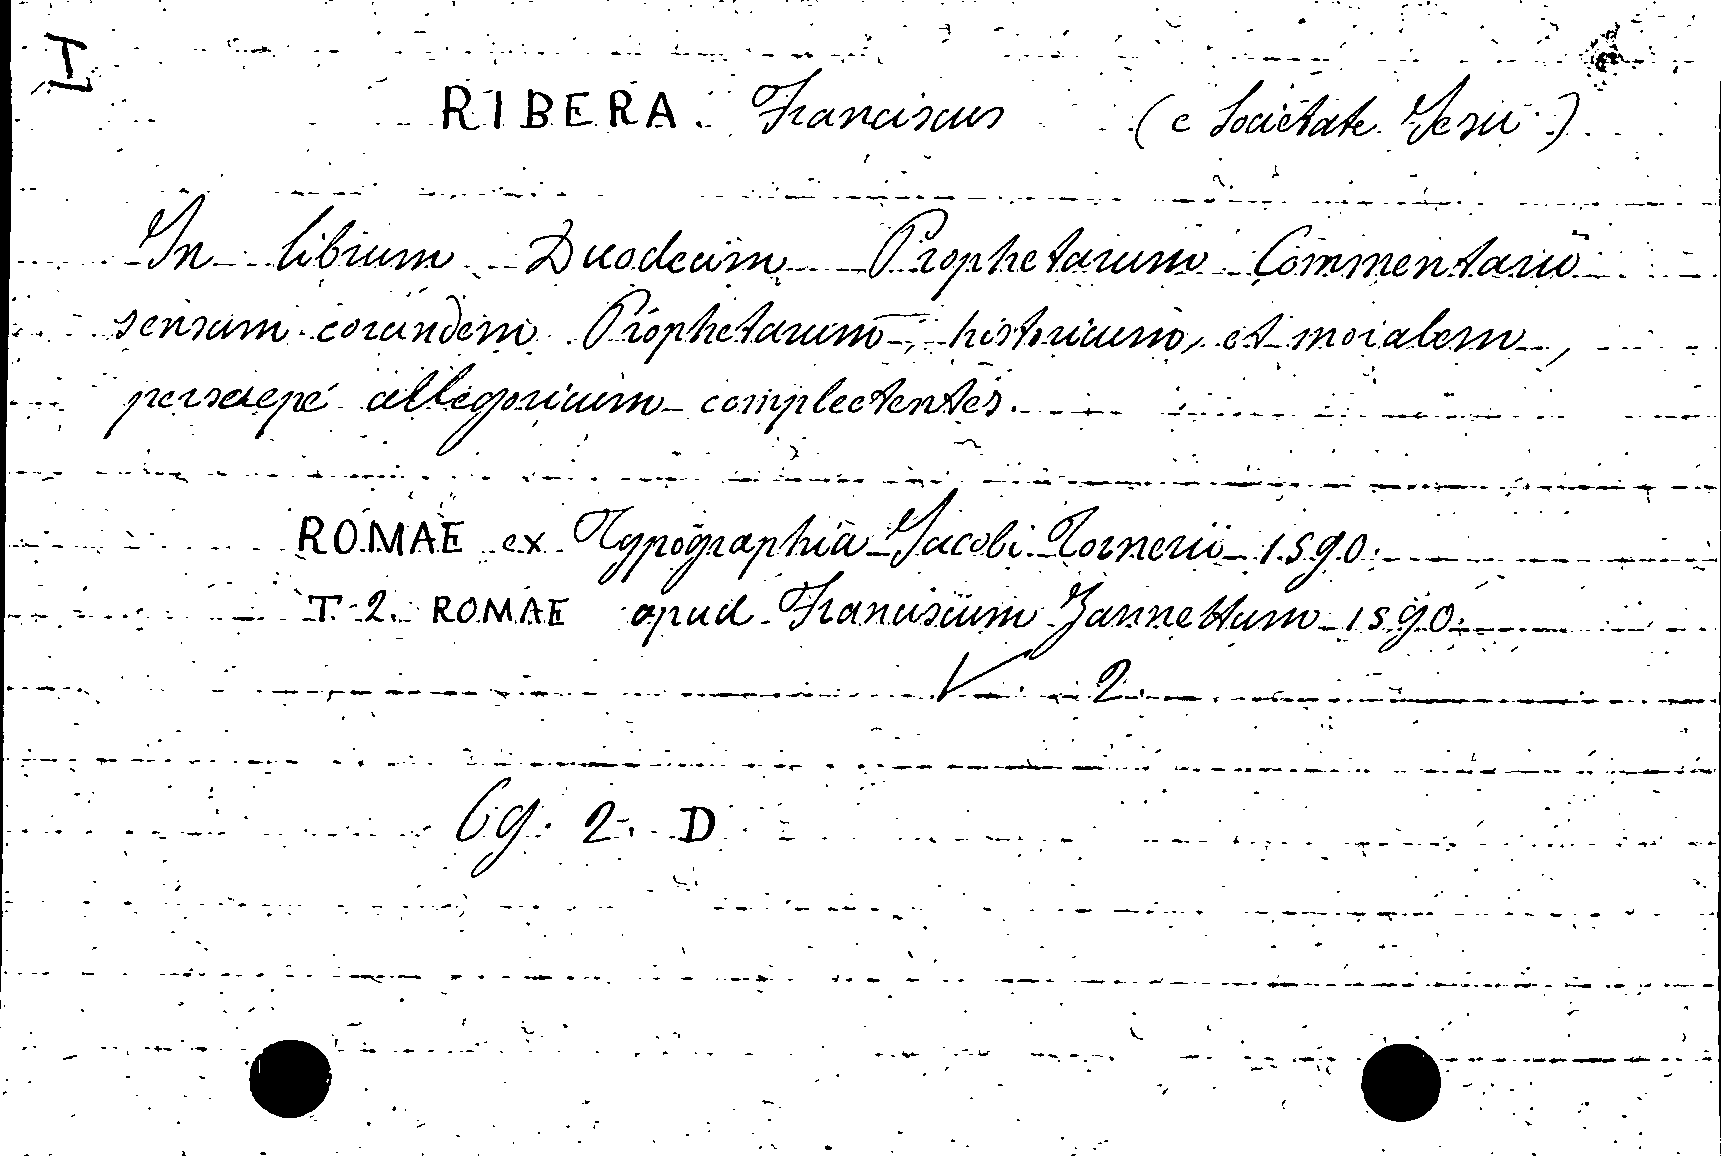 I
RIBERA. Franciscus (e Societate Jesu)
In librum Duodecim Prophetarum Commentarii
sensum eorundem Prophetarum, historicum, et moralem,
persaepé allegoricum complectentes.
ROMAE ex Typographia Jacobi Tornerii 1590.
T. 2. ROMAE apud Franciscum Zannettum 1590.
V 2
69. 2. D